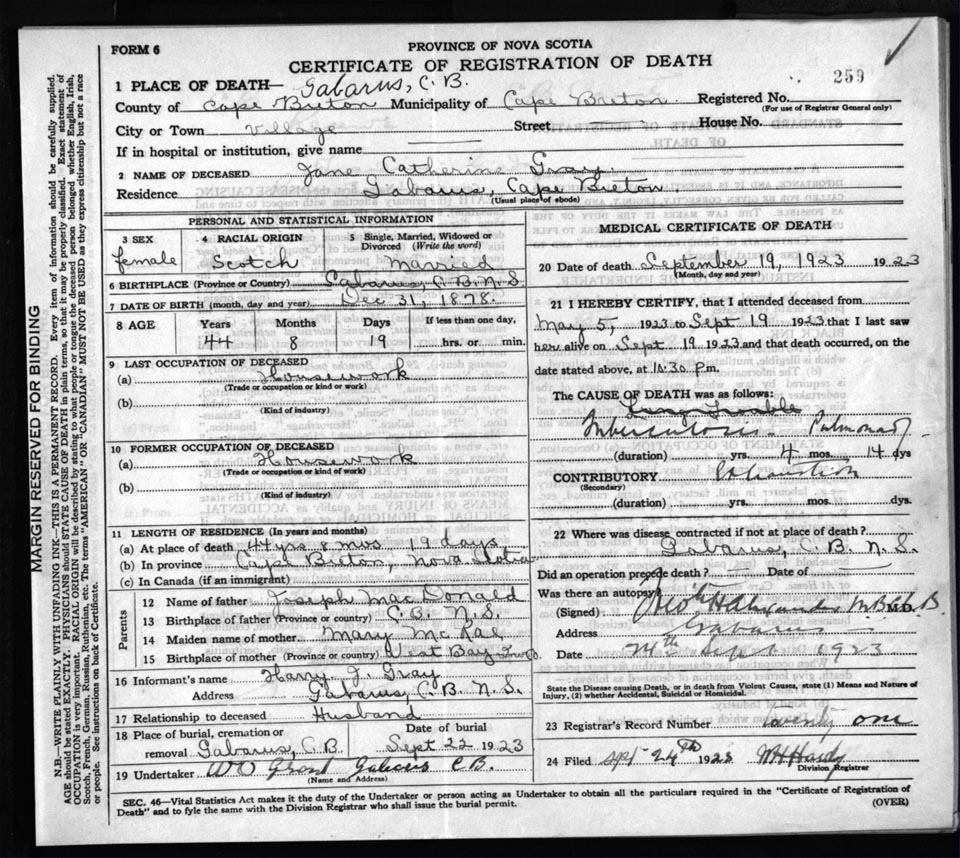 FORM 6
PROVINCE OF NOVA SCOTIA
CERTIFICATE OF REGISTRATION OF DEATH
259
1 PLACE OF DEATH— Gabarus, C. B.
County of Cape Breton Municipality of Cape Breton Registered No.
(For use of Registrar General only)
City or Town Village Street House No.
If in hospital or institution, give name
2 NAME OF DECEASED Jane Catherine Gray
Residence Gabarus, Cape Breton
(Usual place of abode)
PERSONAL AND STATISTICAL INFORMATION
3 SEX female
4 RACIAL ORIGIN Scotch
5 Single, Married, Widowed or Divorced (Write the word) Married
6 BIRTHPLACE (Province or Country) Gabarus, C. B. N. S.
7 DATE OF BIRTH (month, day and year) Dec 31, 1878
8 AGE Years Months Days If less than one day,
44 8 19 hrs. or min.
9 LAST OCCUPATION OF DECEASED
(a) Housework
(Trade or occupation or kind of work)
(b)
(Kind of industry)
10 FORMER OCCUPATION OF DECEASED
(a) Housework
(Trade or occupation or kind of work)
(b)
(Kind of industry)
11 LENGTH OF RESIDENCE (In years and months)
(a) At place of death 44 yrs 8 mos 19 days
(b) In province Cape Breton, Nova Scotia
(c) In Canada (if an immigrant)
Parents
12 Name of father Joseph MacDonald
13 Birthplace of father C.B. N.S.
14 Maiden name of mother Mary McRae
15 Birthplace of mother (Province or country) West Bay
16 Informant's name Harry J. Gray
Address Gabarus, C. B. N. S.
17 Relationship to deceased Husband
18 Place of burial, cremation or removal Gabarus, C.B. Date of burial Sept 22 1923
19 Undertaker W O Grant Gabarus C B.
(Name and Address)
MEDICAL CERTIFICATE OF DEATH
20 Date of death September 19, 1923 1923
(Month, day and year)
21 I HEREBY CERTIFY, that I attended deceased from
May 5, 1923 to Sept 19 1923 that I last saw
her alive on Sept 19 1923 and that death occurred, on the
date stated above, at 10:30 P.m.
The CAUSE OF DEATH was as follows:
Lung Trouble
Tuberculosis Pulmonary
(duration) yrs. 4 mos. 14 dys
CONTRIBUTORY Exhaustion
(Secondary)
(duration) yrs. mos. dys.
22 Where was disease contracted if not at place of death?
Gabarus, C. B. N. S.
Did an operation precede death? Date of
Was there an autopsy
(Signed) Alexander M.B. Ch. B. M.D.
Address Gabarus
Date 24th Sept 1923
State the Disease causing Death, or in death from Violent Causes, state (1) Means and Nature of
Injury, (2) whether Accidental, Suicidal or Homicidal.
23 Registrar's Record Number twenty one
24 Filed Sept 24th 1923 Hardy
Division Registrar
SEC. 46—Vital Statistics Act makes it the duty of the Undertaker or person acting as Undertaker to obtain all the particulars required in the "Certificate of Registration of
Death" and to fyle the same with the Division Registrar who shall issue the burial permit.
(OVER)
MARGIN RESERVED FOR BINDING
N.B.—WRITE PLAINLY WITH UNFADING INK—THIS IS A PERMANENT RECORD. Every item of information should be carefully supplied.
AGE should be stated EXACTLY. PHYSICIANS should STATE CAUSE OF DEATH in plain terms, so that it may be properly classified. Exact statement of
OCCUPATION is very important. RACIAL ORIGIN will be described by stating to what people or tongue the deceased person belonged whether English, Irish,
Scotch, French, German, Russian, Ruthenian, etc. The terms "AMERICAN" OR "CANADIAN" MUST NOT BE USED as they express citizenship but not a race
or people. See instructions on back of Certificate.